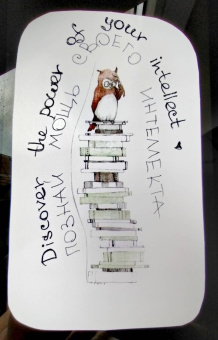 Discover the power of your intellect
ПОЗНАЙ МОЩЬ СВОЕГО ИНТЕМЕКТА